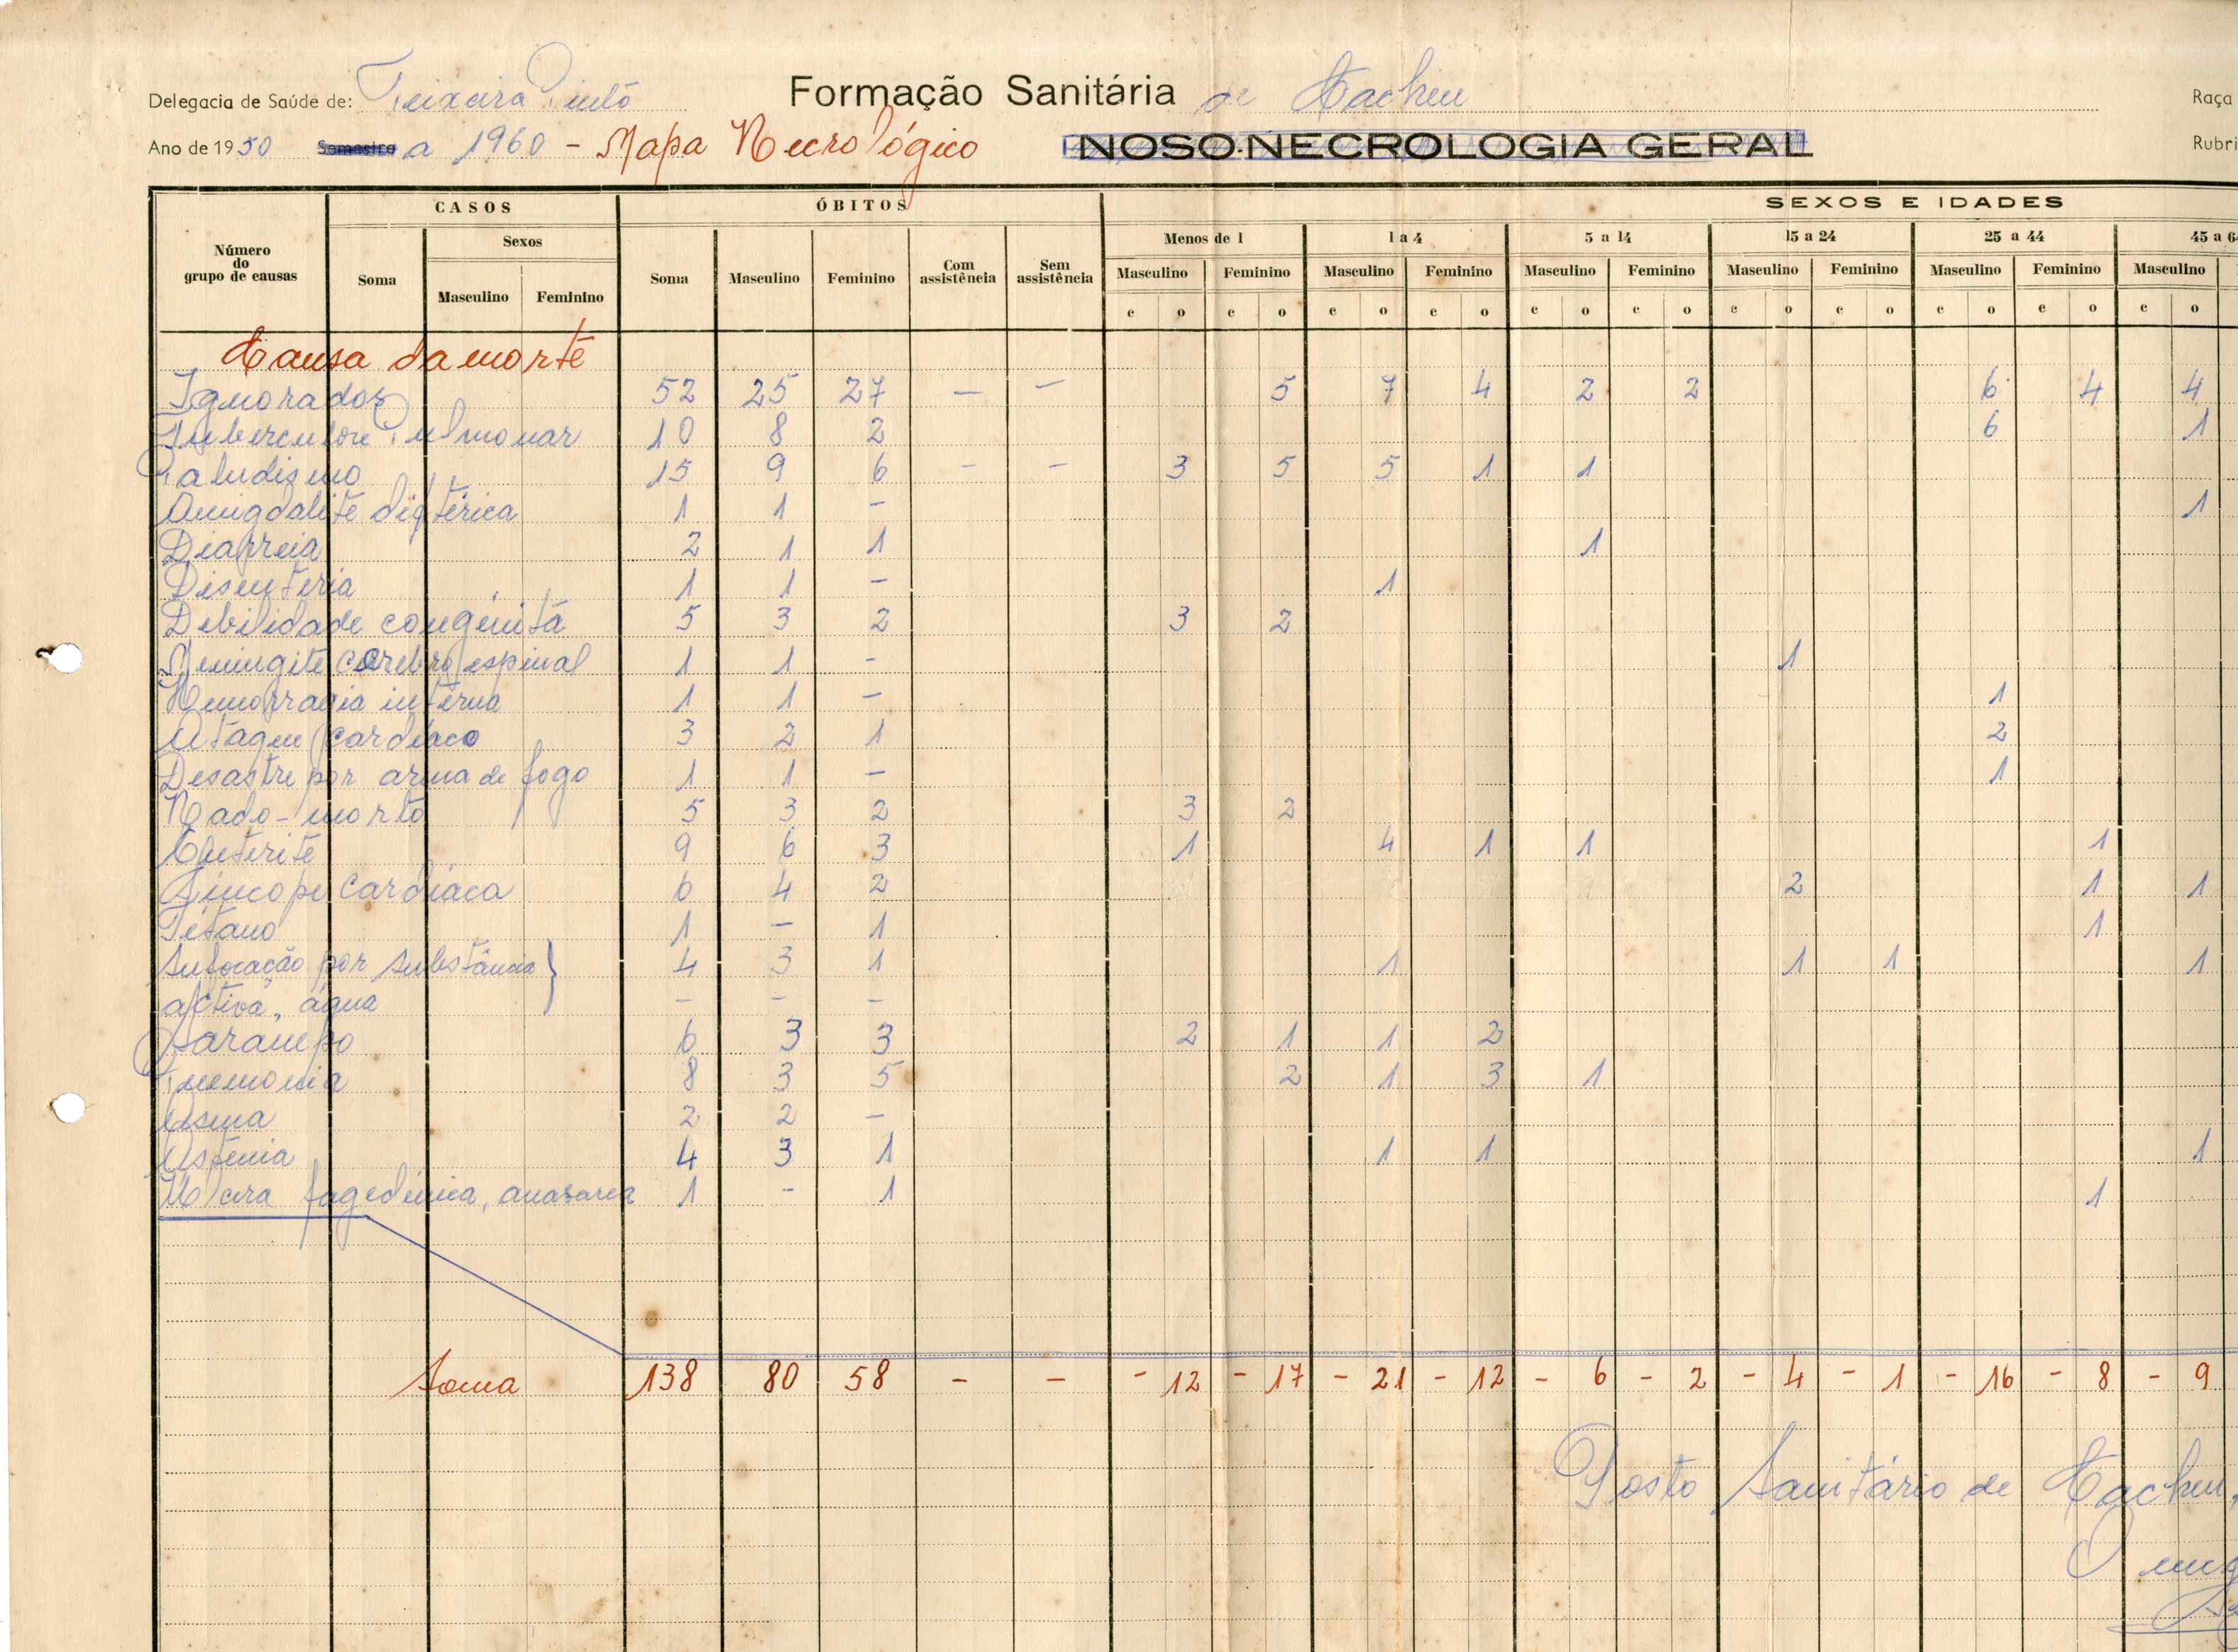 Delegacia de Saúde de: Teixeira Pinto Formação Sanitária de Cacheu Raça
Ano de 1950 Semestre a 1960 - Mapa Necrológico NOSO-NECROLOGIA GERAL Rubri
CASOS ÓBITOS SEXOS E IDADES
Número do grupo de causas Soma Sexos Masculino Feminino Soma Masculino Feminino Com assistência Sem assistência Menos de 1 1 a 4 5 a 14 15 a 24 25 a 44 45 a 6
Masculino Feminino Masculino Feminino Masculino Feminino Masculino Feminino Masculino Feminino Masculino
c o c o c o c o c o c o c o c o c o c o c o
Causa da morte
Ignorados 52 25 27 — — 5 7 4 2 2 6 4 4
Tuberculose Pulmonar 10 8 2 6 1
Paludismo 15 9 6 - - 3 5 5 1 1
Amigdalite diftérica 1 1 - 1
Diarreia 2 1 1 1
Disenteria 1 1 - 1
Debilidade congénita 5 3 2 3 2
Meningite cerebro espinal 1 1 - 1
Hemorragia interna 1 1 - 1
Ataque cardíaco 3 2 1 2
Desastre por arma de fogo 1 1 - 1
Nado-morto 5 3 2 3 2
Enterite 9 6 3 1 4 1 1 1
Síncope cardíaca 6 4 2 2 1 1
Tétano 1 - 1 1
Sufocação por substância } 4 3 1 1 1 1 1
activa, água - - -
Sarampo 6 3 3 2 1 1 2
Pneumonia 8 3 5 2 1 3 1
Asma 2 2 -
Astenia 4 3 1 1 1 1
Úlcera fagedénica, anasarca 1 - 1 1
Soma 138 80 58 - - - 12 - 17 - 21 - 12 - 6 - 2 - 4 - 1 - 16 - 8 - 9
Posto Sanitário de Cacheu,